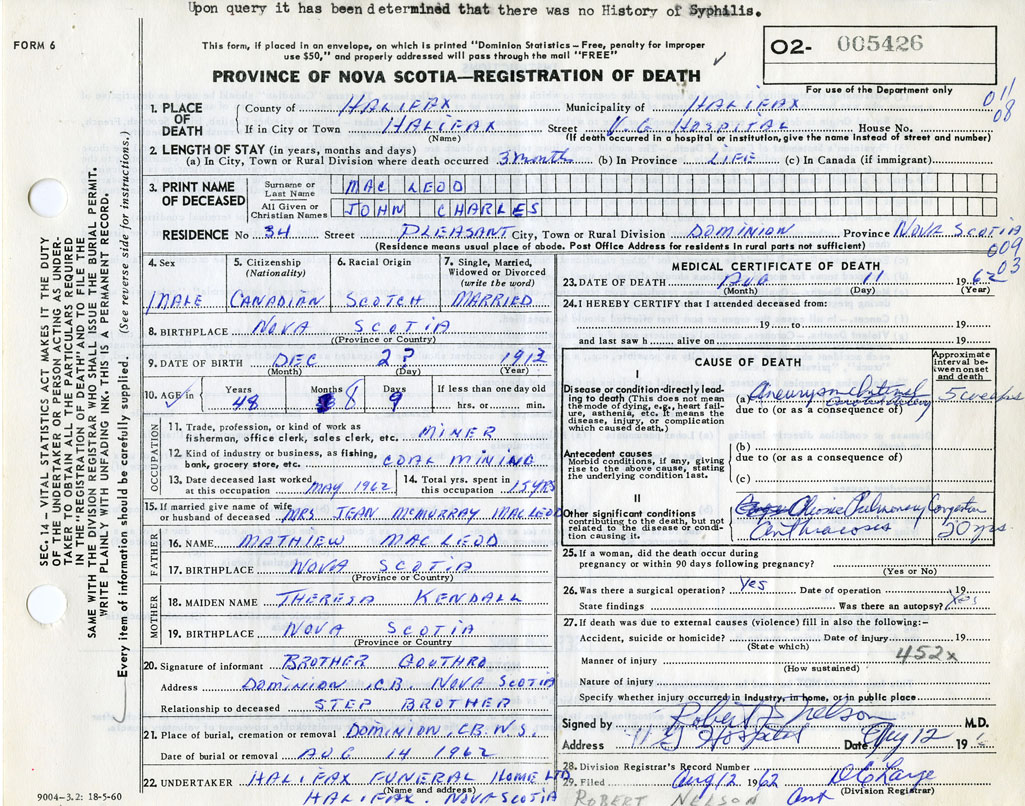 Upon query it has been determined that there was no History of Syphilis.
FORM 6
This form, if placed in an envelope, on which is printed "Dominion Statistics – Free, penalty for improper
use $50," and properly addressed will pass through the mail "FREE"
O2- 005426
For use of the Department only
PROVINCE OF NOVA SCOTIA—REGISTRATION OF DEATH
011
08
1. PLACE OF DEATH County of HALIFAX Municipality of HALIFAX
If in City or Town HALIFAX Street V. G. HOSPITAL House No.
(Name) (If death occurred in a hospital or institution, give the name instead of street and number)
2. LENGTH OF STAY (in years, months and days)
(a) In City, Town or Rural Division where death occurred 3 month (b) In Province LIFE (c) In Canada (if immigrant)
3. PRINT NAME OF DECEASED Surname or Last Name MAC LEOD
All Given or Christian Names JOHN CHARLES
RESIDENCE No 34 Street PLEASANT City, Town or Rural Division DOMINION Province NOVA SCOTIA
(Residence means usual place of abode. Post Office Address for residents in rural parts not sufficient)
009
03
4. Sex 5. Citizenship (Nationality) 6. Racial Origin 7. Single, Married, Widowed or Divorced (write the word)
MALE CANADIAN SCOTCH MARRIED
8. BIRTHPLACE NOVA SCOTIA
(Province or Country)
9. DATE OF BIRTH DEC 2? 1913
(Month) (Day) (Year)
10. AGE in Years Months Days If less than one day old
48 8 9 hrs. or min.
OCCUPATION
11. Trade, profession, or kind of work as
fisherman, office clerk, sales clerk, etc. MINER
12. Kind of industry or business, as fishing,
bank, grocery store, etc. COAL MINING
13. Date deceased last worked at this occupation MAY 1962 14. Total yrs. spent in this occupation 15 YRS
15. If married give name of wife
or husband of deceased MRS JEAN MCMURRAY MACLEOD
FATHER
16. NAME MATHIEW MACLEOD
17. BIRTHPLACE NOVA SCOTIA
(Province or Country)
MOTHER
18. MAIDEN NAME THERESA KENDALL
19. BIRTHPLACE NOVA SCOTIA
(Province or Country)
20. Signature of informant BROTHER GOUTHRO
Address DOMINION C.B. NOVA SCOTIA
Relationship to deceased STEP BROTHER
21. Place of burial, cremation or removal DOMINION, C.B. N.S.
Date of burial or removal AUG 14 1962
22. UNDERTAKER HALIFAX FUNERAL HOME LTD
(Name and address)
HALIFAX. NOVA SCOTIA
9004-3.2: 18-5-60
MEDICAL CERTIFICATE OF DEATH
23. DATE OF DEATH AUG 11 1962
(Month) (Day) (Year)
24. I HEREBY CERTIFY that I attended deceased from:
19 to 19
and last saw h alive on 19
CAUSE OF DEATH
Approximate interval between onset and death
I
Disease or condition directly leading to death (This does not mean
the mode of dying, e.g., heart failure, asthenia, etc. It means the
disease, injury, or complication which caused death.)
(a) Aneurysm 5 weeks
due to (or as a consequence of)
Antecedent causes
Morbid conditions, if any, giving
rise to the above cause, stating
the underlying condition last.
(b)
due to (or as a consequence of)
(c)
II
Other significant conditions
contributing to the death, but not
related to the disease or condition causing it.
Pulmonary Congestion
Anthracosis 50 yrs
25. If a woman, did the death occur during
pregnancy or within 90 days following pregnancy?
(Yes or No)
26. Was there a surgical operation? Yes Date of operation 19
State findings Was there an autopsy? Yes
27. If death was due to external causes (violence) fill in also the following:–
Accident, suicide or homicide? Date of injury 19
(State which)
452x
Manner of injury
(How sustained)
Nature of injury
Specify whether injury occurred in industry, in home, or in public place
Signed by Robert Nelson M.D.
Address V G Hospital Date Aug 12 19
28. Division Registrar's Record Number
29. Filed Aug 12 1962
(Division Registrar)
ROBERT NELSON
SEC. 14 – VITAL STATISTICS ACT MAKES IT THE DUTY
OF THE UNDERTAKER OR PERSON ACTING AS UNDER-
TAKER TO OBTAIN ALL THE PARTICULARS REQUIRED
IN THE "REGISTRATION OF DEATH" AND TO FILE THE
SAME WITH THE DIVISION REGISTRAR WHO SHALL ISSUE THE BURIAL PERMIT.
WRITE PLAINLY WITH UNFADING INK. THIS IS A PERMANENT RECORD.
Every item of information should be carefully supplied. (See reverse side for instructions.)